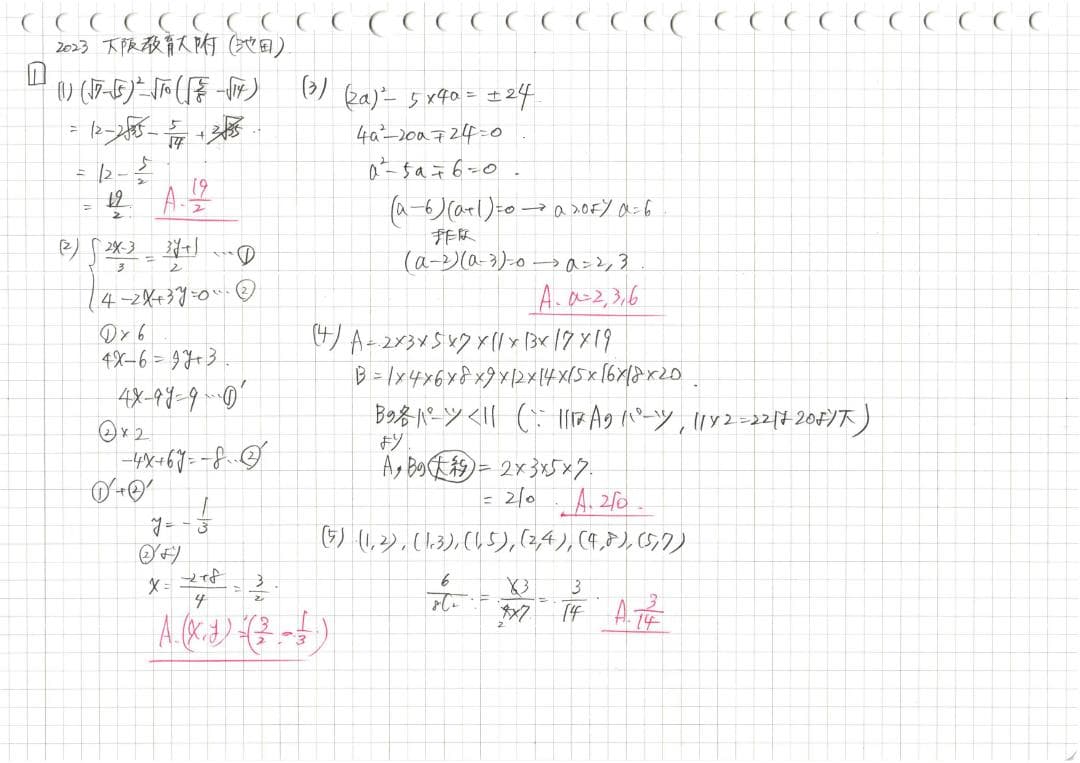 2023 大阪教育大附(池田)
1
(1) (√7-√5)²-√10(√5/8-√14)
= 12-2√35-5/√14+2√35
= 12-5/2
= 19/2 A. 19/2
(2) { 2x-3/3 = 3y+1/2 …①
4-2x+3y=0…②
①×6
4x-6=9y+3.
4x-9y=9…①'
②×2
-4x+6y=-8…②'
①'+②'
y=-1/3
②'より
x= -2+8/4 = 3/2
A.(x,y)=(3/2, -1/3)
(3) (2a)²-5×4a=±24
4a²-20a∓24=0
a²-5a∓6=0.
(a-6)(a+1)=0→a>0よりa=6
(a-2)(a-3)=0→a=2,3.
A. a=2,3,6
(4) A=2×3×5×7×11×13×17×19
B=1×4×6×8×9×12×14×15×16×18×20.
Bの各パーツ<11 (∵ 11はAのパーツ, 11×2=22は20より大)
より
A,Bの大約=2×3×5×7.
=210. A. 210.
(5) (1,2), (1,3), (1,5), (2,4), (4,8), (5,7)
6/8C₂ = 6×3/4×7 = 3/14. A. 3/14